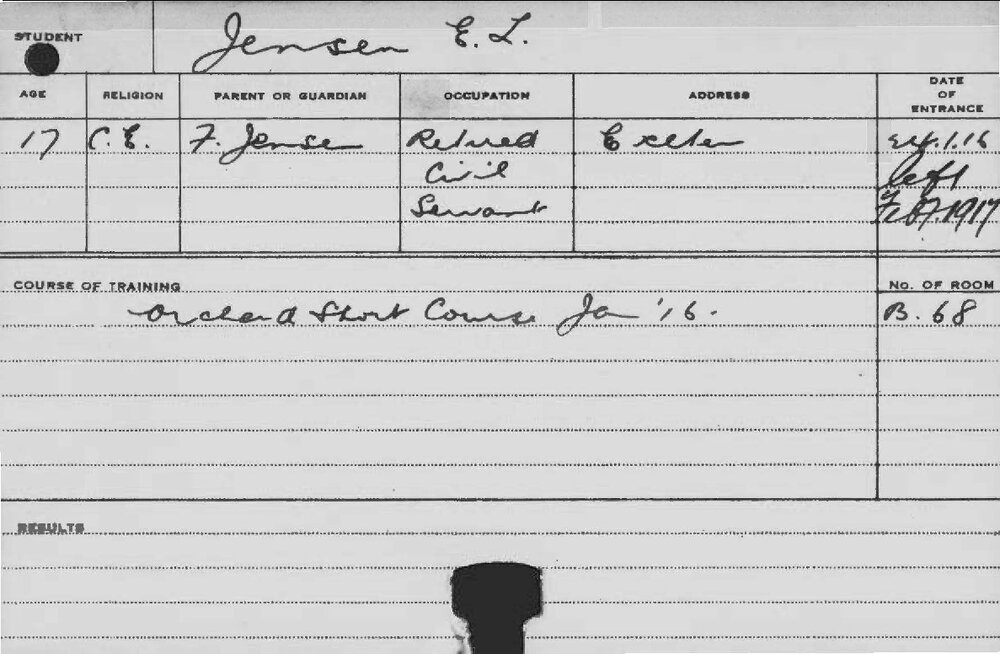 STUDENT Jensen E. L.
AGE RELIGION PARENT OR GUARDIAN OCCUPATION ADDRESS DATE OF ENTRANCE
17 C.E. F. Jensen Retired Exeter 24.1.16
Civil left
Servant Feb 7. 1917
COURSE OF TRAINING No. OF ROOM
Orchard Short Course Jan '16. B. 68
RESULTS